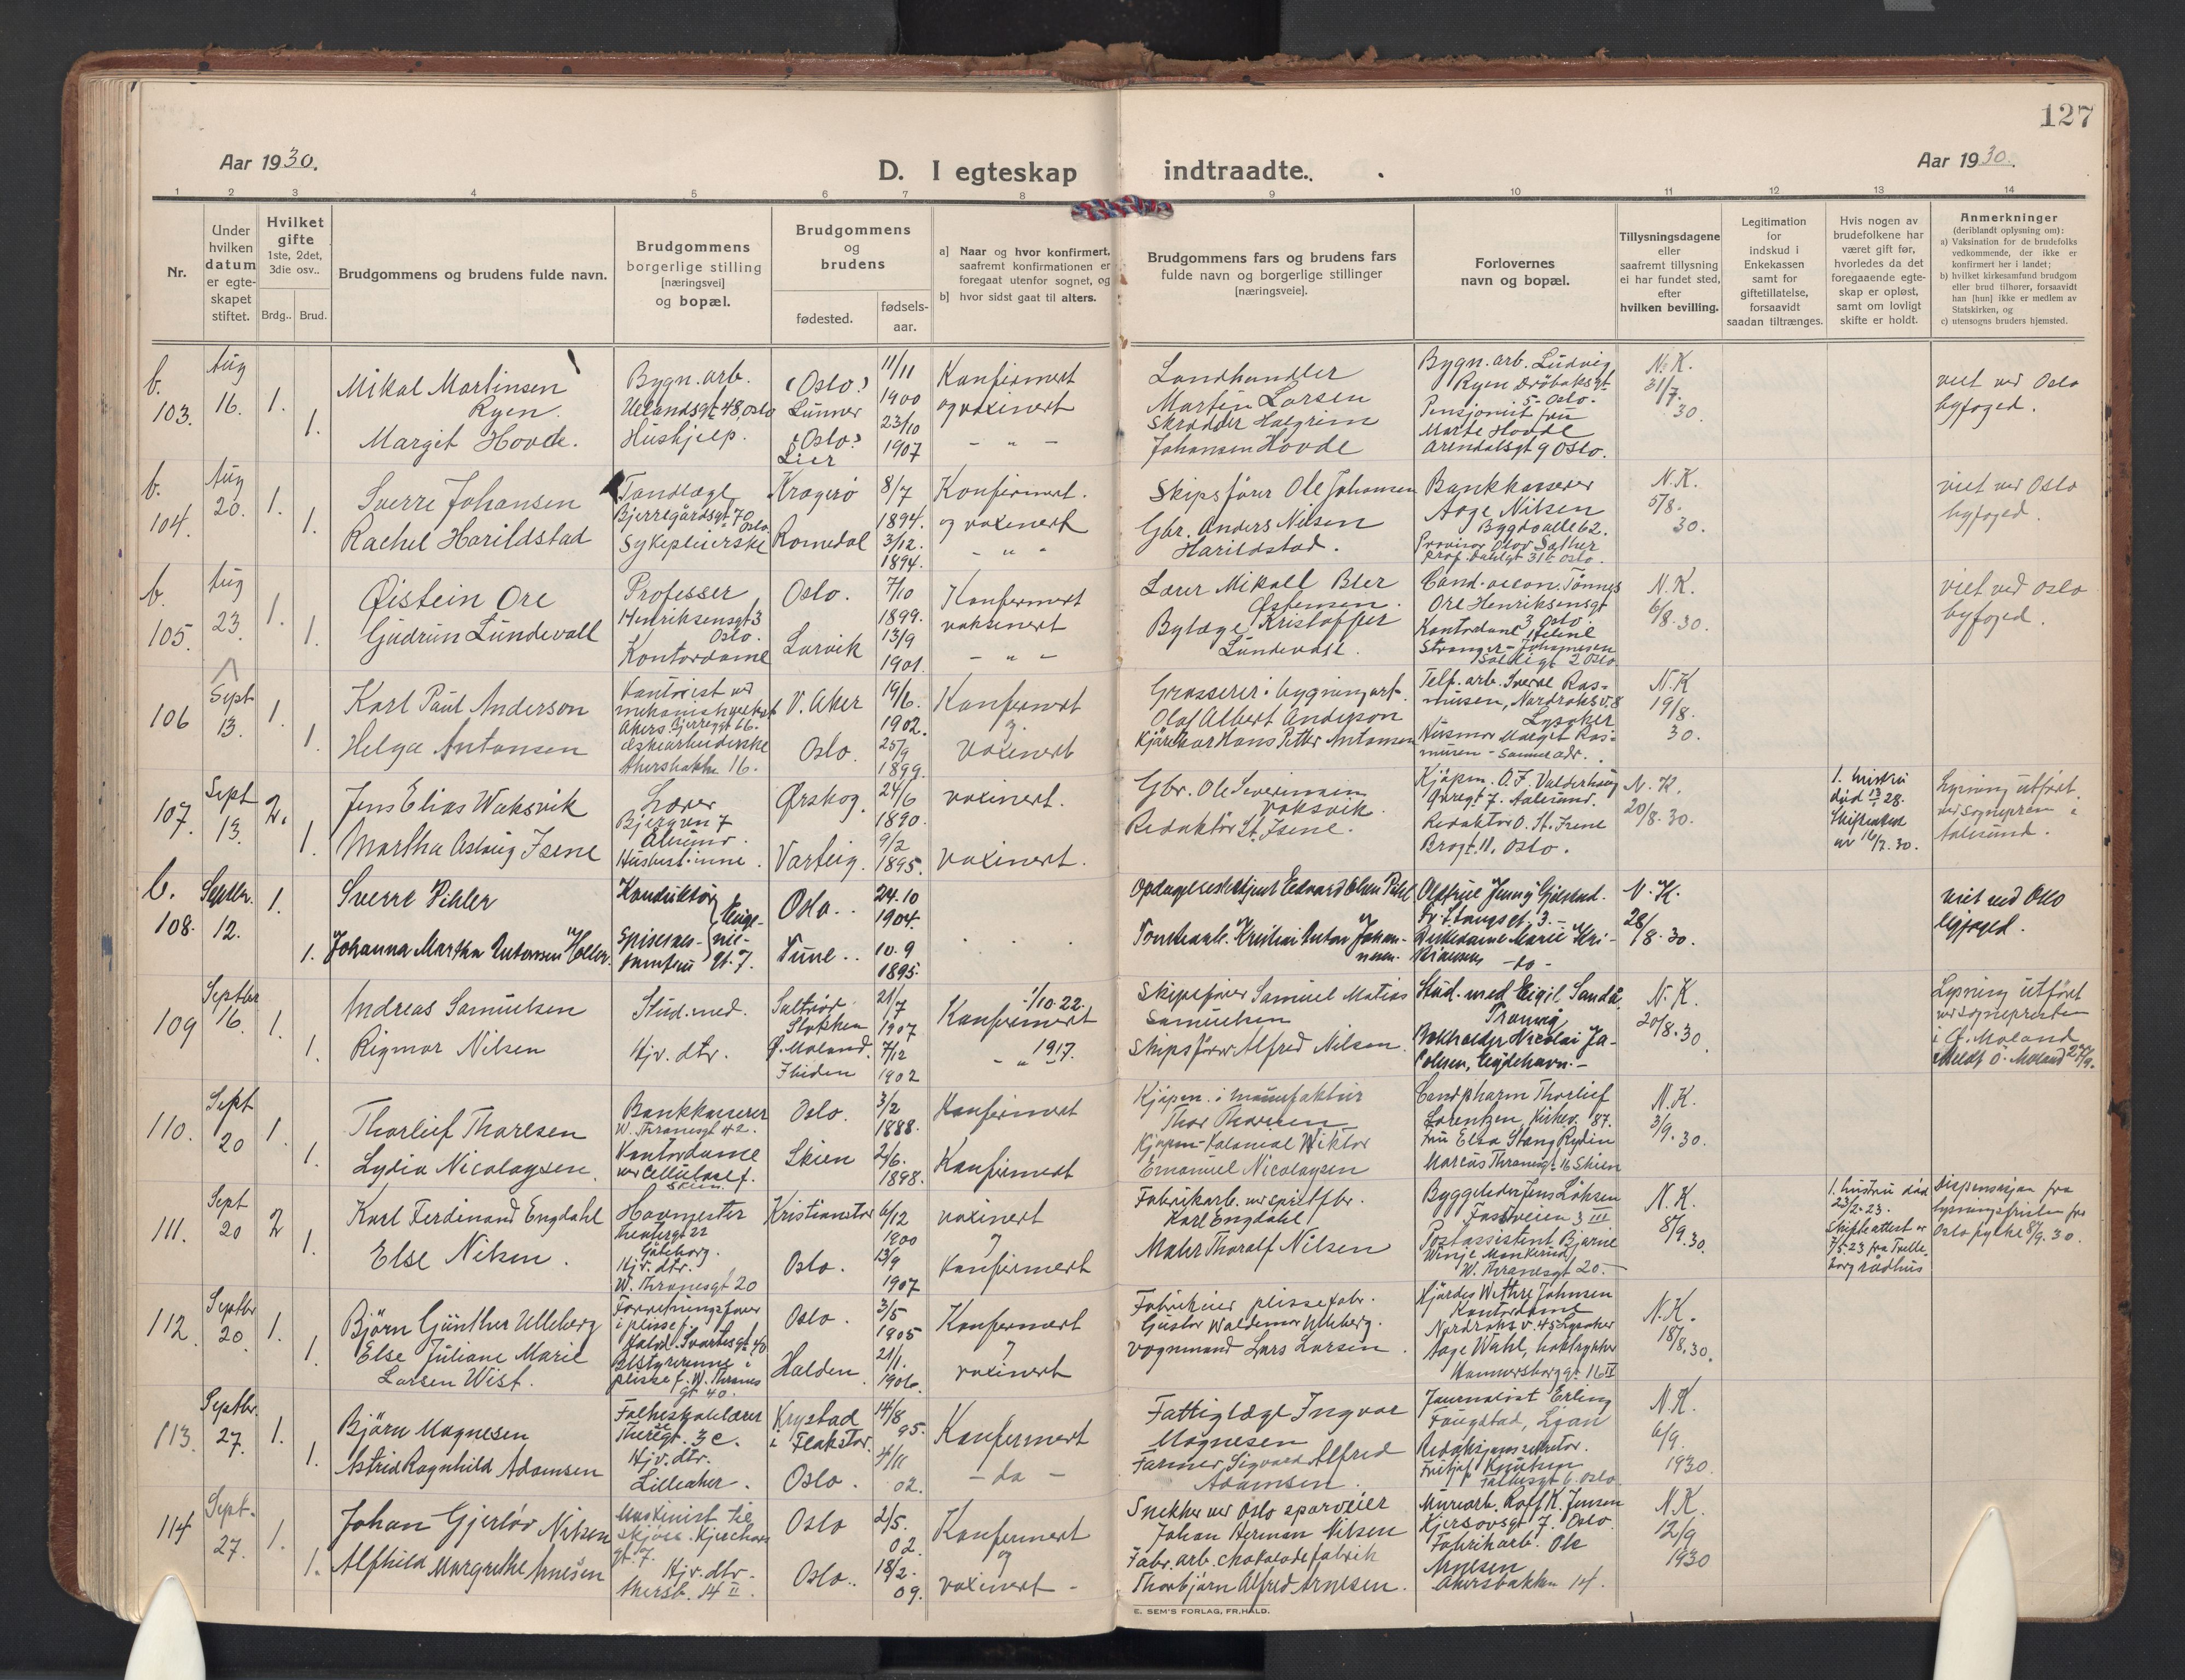 127
Aar 1930.
D. I egteskap indtraadte.
Aar 1930.
1 2 3 4 5 6 7 8 9 10 11 12 13 14
Nr.
Under hvilken datum er egte-skapet stiftet.
Hvilket gifte 1ste, 2det, 3die osv..
Brdg.. Brud.
Brudgommens og brudens fulde navn.
Brudgommens borgerlige stilling [næringsvei] og bopæl.
Brudgommens og brudens
fødested.
fødsels-aar.
a] Naar og hvor konfirmert, saafremt konfirmationen er foregaat utenfor sognet, og
b] hvor sidst gaat til alters.
Brudgommens fars og brudens fars fulde navn og borgerlige stillinger [næringsveie].
Forlovernes navn og bopæl.
Tillysningsdagene eller saafremt tillysning ei har fundet sted, efter hvilken bevilling.
Legitimation for indskud i Enkekassen samt for giftetillatelse, forsaavidt saadan tiltrænges.
Hvis nogen av brudefolkene har været gift før, hvorledes da det foregaaende egte-skap er opløst, samt om lovligt skifte er holdt.
Anmerkninger
(deriblandt oplysning om):
a) Vaksination for de brudefolks vedkommende, der ikke er konfirmert her i landet;
b) hvilket kirkesamfund brudgom eller brud tilhører, forsaavidt han [hun] ikke er medlem av Statskirken, og
c) utensogns bruders hjemsted.
b. 103. Aug 16. 1. 1.
Mikal Martinsen Ryen.
Margit Hovde.
Bygn. arb.
Uelandsgt 48, Oslo
Hushjelp.
(Oslo) Lunner
(Oslo) Lier
11/11 1900
23/10 1907
Konfirmert og vaxinert
- " -
Landhandler Martin Larsen
Skrædder Halgrim Johansen Hovde
Bygn. arb. Ludvig Ryen Drøbaksgt 5 Oslo.
Pensjonist fru Marte Hovde Arendalsgt 9 Oslo.
N.K. 31/7. 30.
viet ved Oslo byfoged.
b. 104. Aug 20. 1. 1.
Sverre Johansen
Rachel Harildstad
Tandlæge
Bjerregårdsgt 70 Oslo
Sykepleierske
Kragerø
Romedal
8/7 1894.
3/12. 1894.
Konfirmert. og vaxinert
- " -
Skipsfører Ole Johansen
Gbr. Anders Nilsen Harildstad.
Bankkasserer Aage Nilsen Bygdøalle 62.
Provisor Olav Sæther Prof. Dahlsgt 31 Oslo.
N.K. 5/8. 30.
viet ved Oslo byfoged.
b. 105. Aug 23. 1. 1.
Øistein Ore
Gudrun Lundevall
Professer
Henriksensgt 3 Oslo.
Kontordame
Oslo.
Larvik
7/10 1899.
13/9 1901.
Konfirmert vaksinert
- " -
Lærer Mikall Bær Østensen.
Bylæge Kristoffer Lundevall.
Cand. oecon. Tønnes Ore Henriksensgt 3 Oslo.
Kontordame Helene Stranger-Johannesen
N.K. 6/8. 30.
viet ved Oslo byfoged.
106 Sept 13. 1. 1.
Karl Paul Anderson
Helga Antonsen
Kontorist ved mekanisk verksted Akers. Bjerregt 66.
Eskearbeiderske Akersbakken 16.
V. Aker
Oslo.
19/6. 1902.
25/9 1899.
Konfirmert og vaxinert
Grosserer i bygningsart. Olaf Albert Anderson
Kjørekar Hans Petter Antonsen
Telf. arb. Sverre Rasmussen, Nordraks v. 8 Lysaker
Husmor Margit Rasmussen - samme adr.
N.K 19/8. 30.
107. Sept 13. 2. 1.
Jens Elias Waksvik
Martha Aslaug Isene
Lærer
Husbest.inne.
Ørskog.
Varteig.
24/6 1890.
9/2 1895.
vaxinert.
vaxinert.
Gbr. Ole Severinsen Vaksvik.
Redaktør St. Isene.
Kjøpm. O.F. Valderhaug Aalesund.
Redaktør O. St. Isene Brogt. 11. Oslo.
N.K. 20/8. 30.
1. hustru død 28. Skifteattest av 16/7. 30.
Lysning utført ved sogneprest i Aalesund.
b. 108. Septbr. 12. 1. 1.
Sverre Pihler
Johanna Martha Antonsen Holler.
Konduktør
Oslo..
Tune..
24.10 1904.
10.9 1895.
Opdagelsesbetjent Edvard Olsen
Kristian Anton Johannesen.
Oldfrue Jenny Gjølstad.
N.K. 28/8. 30.
viet ved Oslo byfoged.
109 Septbr 16. 1. 1.
Andreas Samuelsen
Rigmor Nilsen
Stud. med.
Hjv. dtr.
Saltrød Stokken
Ø. Moland. Flosta
21/7 1907
7/12 1902
Konfirmert 1/10.22.
- " - 1917.
Skipsfører Samuel Matias Samuelsen
Skipsfører Alfred Nilsen.
Stud. med Eigil Sandå Tromøy
Bokholder Nicolai Jacobsen, Eydehavn.-
N.K. 20/8. 30
Lysning utført ved sognepresten i Ø. Moland
110. Sept 20 1. 1.
Thorlief Thoresen
Lydia Nicolaysen.
Bankkasserer
W. Thranesgt 42.
Kontordame ved Cellulosef. Skien
Oslo.
Skien
3/2 1888.
2/6. 1898.
Konfirmert
Konfirmert
Kjøpm. i manufaktur Thor Thoresen
Kjøpm-Kolonial Wiktor Emanuel Nicolaysen
Cand pharm Thorlief Lorentzen, Kirkev. 87.
Fru Elsa Stang Rydin Marcus Thranesgt 16 Skien
N.K. 3/9. 30.
111. Sept 20 2 1.
Karl Ferdinand Engdahl
Else Nilsen.
Hovmester
Teatergt 22 Gøteborg.
Hjv. dtr.
W. Thranesgt 20
Kristianstad
Oslo.
6/12 1900
13/9 1907
vaxinert og konfirmert
Fabrikarb. ved spritfbr. Karl Engdahl
Maler Thoralf Nilsen
Byggeleder Jens Løhsen Fastveien 3 III
Postassistent Bjarne Winje Monkerud, W. Thranesgt 20.-
N.K. 8/9. 30.
1. hustru død 23/2-23. Skifteattest er 7/5-23 fra Trelleborg rådhus
Dispensasjon fra lysningsfristen fra Oslo fylke 8/9. 30.
112. Septbr 20. 1. 1.
Bjørn Günther Ulleberg
Else Juliane Marie Larsen Wist.
Forretningsfører i plissef. Halvd. Svartes gt 40
Bestyrerinne i plissef. W. Thranes gt 40.
Oslo.
Halden
3/5 1905
21/1. 1906.
Konfirmert og vaxinert
Fabrikeier plissefabr. Gustav Waldemar Ulleberg.
Vognmand Lars Larsen.
Hjørdis Withre Johnsen Kontordame Nordraks v. 45 Lysaker
Aage Wahl, boktrykker Hammersborggt 16 II
N.K. 18/8. 30.
113. Septbr. 27. 1. 1.
Bjørn Magnesen
Astrid Ragnhild Adamsen
Folkeskolelærer
Theresgt. 3c.
Hjv. dtr.
Lilleaker.
Krystad i Flakstad.
Oslo.
14/8 95.
4/11 02.
Konfirmert
- do -
Fattiglæge Ingvar Magnesen
Farmer Sigvard Alfred Adamsen.
Journalist Erling Faugstad, Ljan
Redaksjonssekretær. Fritjof Knutsen Falbesgt 6. Oslo
N.K. 6/9. 1930.
114 Sept. 27. 1. 1.
Johan Gjerløv Nilsen
Alfhild Margrethe Arnesen
Hjv. dtr-
Akersb. 14 II.
Oslo
Oslo..
2/5. 02.
18/2. 09.
Konfirmert og vaxinert -
Snekker ved Oslo sporveier Johan Herman Nilsen
Fabr. arb. chokoladefabrik Thorbjørn Alfred Arnesen.
Murearb. Rolf K. Jensen Oslo.
Fabrikarb. Ole Arnesen Akersbakken 14.
N.K. 12/9 1930
E. SEM'S FORLAG, FR.HALD.